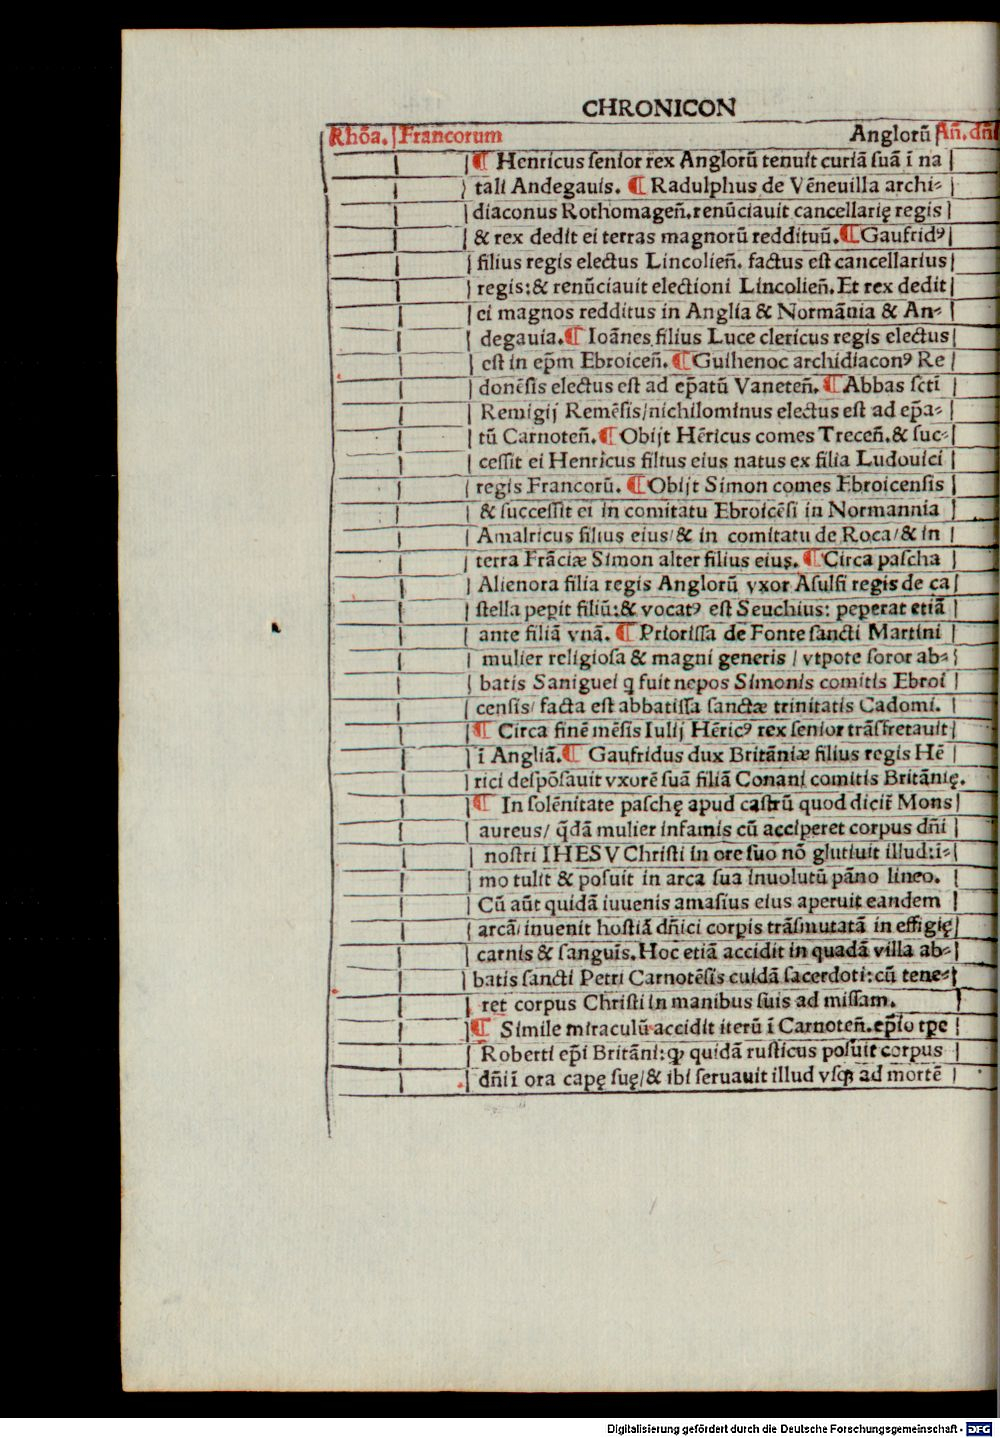 CHRONICON
Rhōa. Francorum Anglorū Añ. dñi
¶ Henricus ſenior rex Anglorū tenuit curiā ſuā ī na
tali Andegauis. ¶ Radulphus de Vēneuilla archi⸗
diaconus Rothomageñ. renūciauit cancellarię regis
& rex dedit ei terras magnorū reddituū. ¶ Gaufridꝰ
filius regis electus Lincolieñ. factus eſt cancellarius
regis: & renūciauit electioni Lincolieñ. Et rex dedit
ei magnos redditus in Anglia & Normānia & An⸗
degauia. ¶ Ioānes filius Luce clericus regis electus
eſt in ep̄m Ebroiceñ. ¶ Guihenoc archidiaconꝰ Re
donēſis electus eſt ad ep̄atū Vaneteñ. ¶ Abbas ſcti
Remigij Remēſis/ nichilominus electus eſt ad ep̄a⸗
tū Carnoteñ. ¶ Obijt Hēricus comes Treceñ. & ſuc⸗
ceſſit ei Henricus filtus eius natus ex filia Ludouici
regis Francorū. ¶ Obijt Simon comes Ebroicenſis
& ſucceſſit ei in comitatu Ebroicēſi in Normannia
Amalricus filius eius/ & in comitatu de Roca/ & in
terra Frāciæ Simon alter filius eius. ¶ Circa paſcha
Alienora filia regis Anglorū vxor Aſulfi regis de ca
ſtella pepit filiū: & vocatꝰ eſt Seuchius: peperat etiā
ante filiā vnā. ¶ Prioriſſa de Fonte ſancti Martini
mulier religioſa & magni generis / vtpote ſoror ab⸗
batis Saniguei q fuit nepos Simonis comitis Ebroi
cenſis/ facta eſt abbatiſſa ſanctæ trinitatis Cadomi.
¶ Circa finē mēſis Iulij Hēricꝰ rex ſenior trāſfretauit
ī Angliā. ¶ Gaufridus dux Britāniæ filius regis Hē
rici deſpōſauit vxorē ſuā filiā Conani comitis Britānię.
¶ In ſolēnitate paſchę apud caſtrū quod dicit̄ Mons
aureus/ q̄dā mulier infamis cū acciperet corpus dñi
noſtri IHESV Chriſti in ore ſuo nō glutiuit illud: i⸗
mo tulit & poſuit in arca ſua inuolutū pāno lineo.
Cū aūt quidā iuuenis amaſius eius aperuit eandem
arcā/ inuenit hoſtiā dñici corpis trāſmutatā in effigię
carnis & ſanguīs. Hoc etiā accidit in quadā villa ab⸗
batis ſancti Petri Carnotēſis cuidā ſacerdoti: cū tene⸗
ret corpus Chriſti in manibus ſuis ad miſſam.
¶ Simile miraculū accidit iterū ī Carnoteñ. ep̄io tp̄e
Roberti ep̄i Britāni: ꝙ quidā ruſticus poſuit corpus
dñi ī ora capę ſuę/ & ibi ſeruauit illud vſqꝫ ad mortē
Digitalisierung gefördert durch die Deutsche Forschungsgemeinschaft - DFG